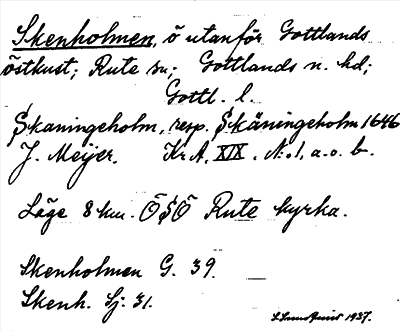 Skenholmen, ö utanför Gottlands
östkust; Rute sn; Gottlands n. hd;
Gottl. l.
Skaningeholm, resp. Skäningeholm 1646
J. Meijer. Kr. A. XIX. N:o 1, a. o. b.
Läge 8 km. ÖSÖ Rute kyrka.
Skenholmen G. 39.
Skenh. Sj. 31.
1937.